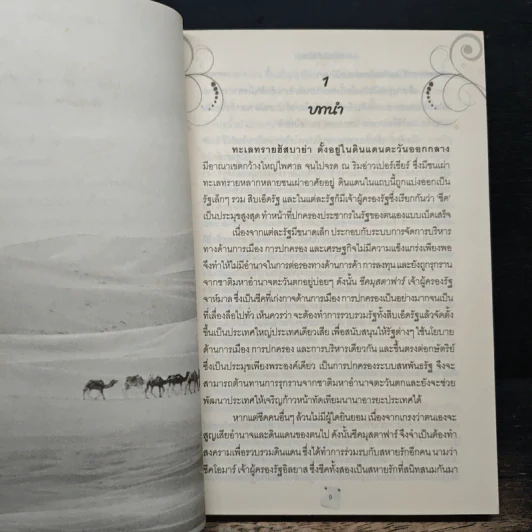 1
บทนำ
ทะเลทรายฮัสบาย่า ตั้งอยู่ในดินแดนตะวันออกกลาง
มีอาณาเขตกว้างใหญ่ไพศาล จนไปจรด ณ ริมอ่าวเปอร์เซียร์ ซึ่งมีชนเผ่า
ทะเลทรายหลากหลายชนเผ่าอาศัยอยู่ ดินแดนในแถบนี้ถูกแบ่งออกเป็น
รัฐเล็กๆ รวม สิบเอ็ดรัฐ และในแต่ละรัฐก็มีเจ้าผู้ครองรัฐซึ่งเรียกกันว่า ‘ชีค’
เป็นประมุขสูงสุด ทำหน้าที่ปกครองประชากรในรัฐของตนเองแบบเบ็ดเสร็จ
เนื่องจากแต่ละรัฐมีขนาดเล็ก ประกอบกับระบบการจัดการบริหาร
ทางด้านการเมือง การปกครอง และเศรษฐกิจไม่มีความแข็งแกร่งเพียงพอ
จึงทำให้ไม่มีอำนาจในการต่อรองทางด้านการค้า การลงทุน และยังถูกรุกราน
จากชาติมหาอำนาจตะวันตกอยู่บ่อยๆ ดังนั้น ชีคมุสตาฟาร์ เจ้าผู้ครองรัฐ
จาห์มาล ซึ่งเป็นชีคที่เก่งกาจด้านการเมือง การปกครองเป็นอย่างมากจนเป็น
ที่เลื่องลือไปทั่ว เห็นควรว่า จะต้องทำการรวบรวมรัฐทั้งสิบเอ็ดรัฐแล้วจัดตั้ง
ขึ้นเป็นประเทศใหญ่ประเทศเดียวเสีย เพื่อสนับสนุนให้รัฐต่างๆ ใช้นโยบาย
ด้านการเมือง การปกครอง และการบริหารเดียวกัน และขึ้นตรงต่อกษัตริย์
ซึ่งเป็นประมุขเพียงพระองค์เดียว เป็นการปกครองระบบสหพันธรัฐ จึงจะ
สามารถต้านทานการรุกรานจากชาติมหาอำนาจตะวันตกและยังจะช่วย
พัฒนาประเทศให้เจริญก้าวหน้าทัดเทียมนานาอารยะประเทศได้
หากแต่ชีคคนอื่นๆ ล้วนไม่มีผู้ใดยินยอม เนื่องจากเกรงว่าตนเองจะ
สูญเสียอำนาจและดินแดนของตนไป ดังนั้นชีคมุสตาฟาร์ จึงจำเป็นต้องทำ
สงครามเพื่อรวบรวมดินแดน ซึ่งได้ทำการร่วมรบกับสหายรักอีกคน นามว่า
ชีคโอมาร์ เจ้าผู้ครองรัฐอิลยาส ซึ่งชีคทั้งสองเป็นสหายรักที่สนิทสนมกันมา